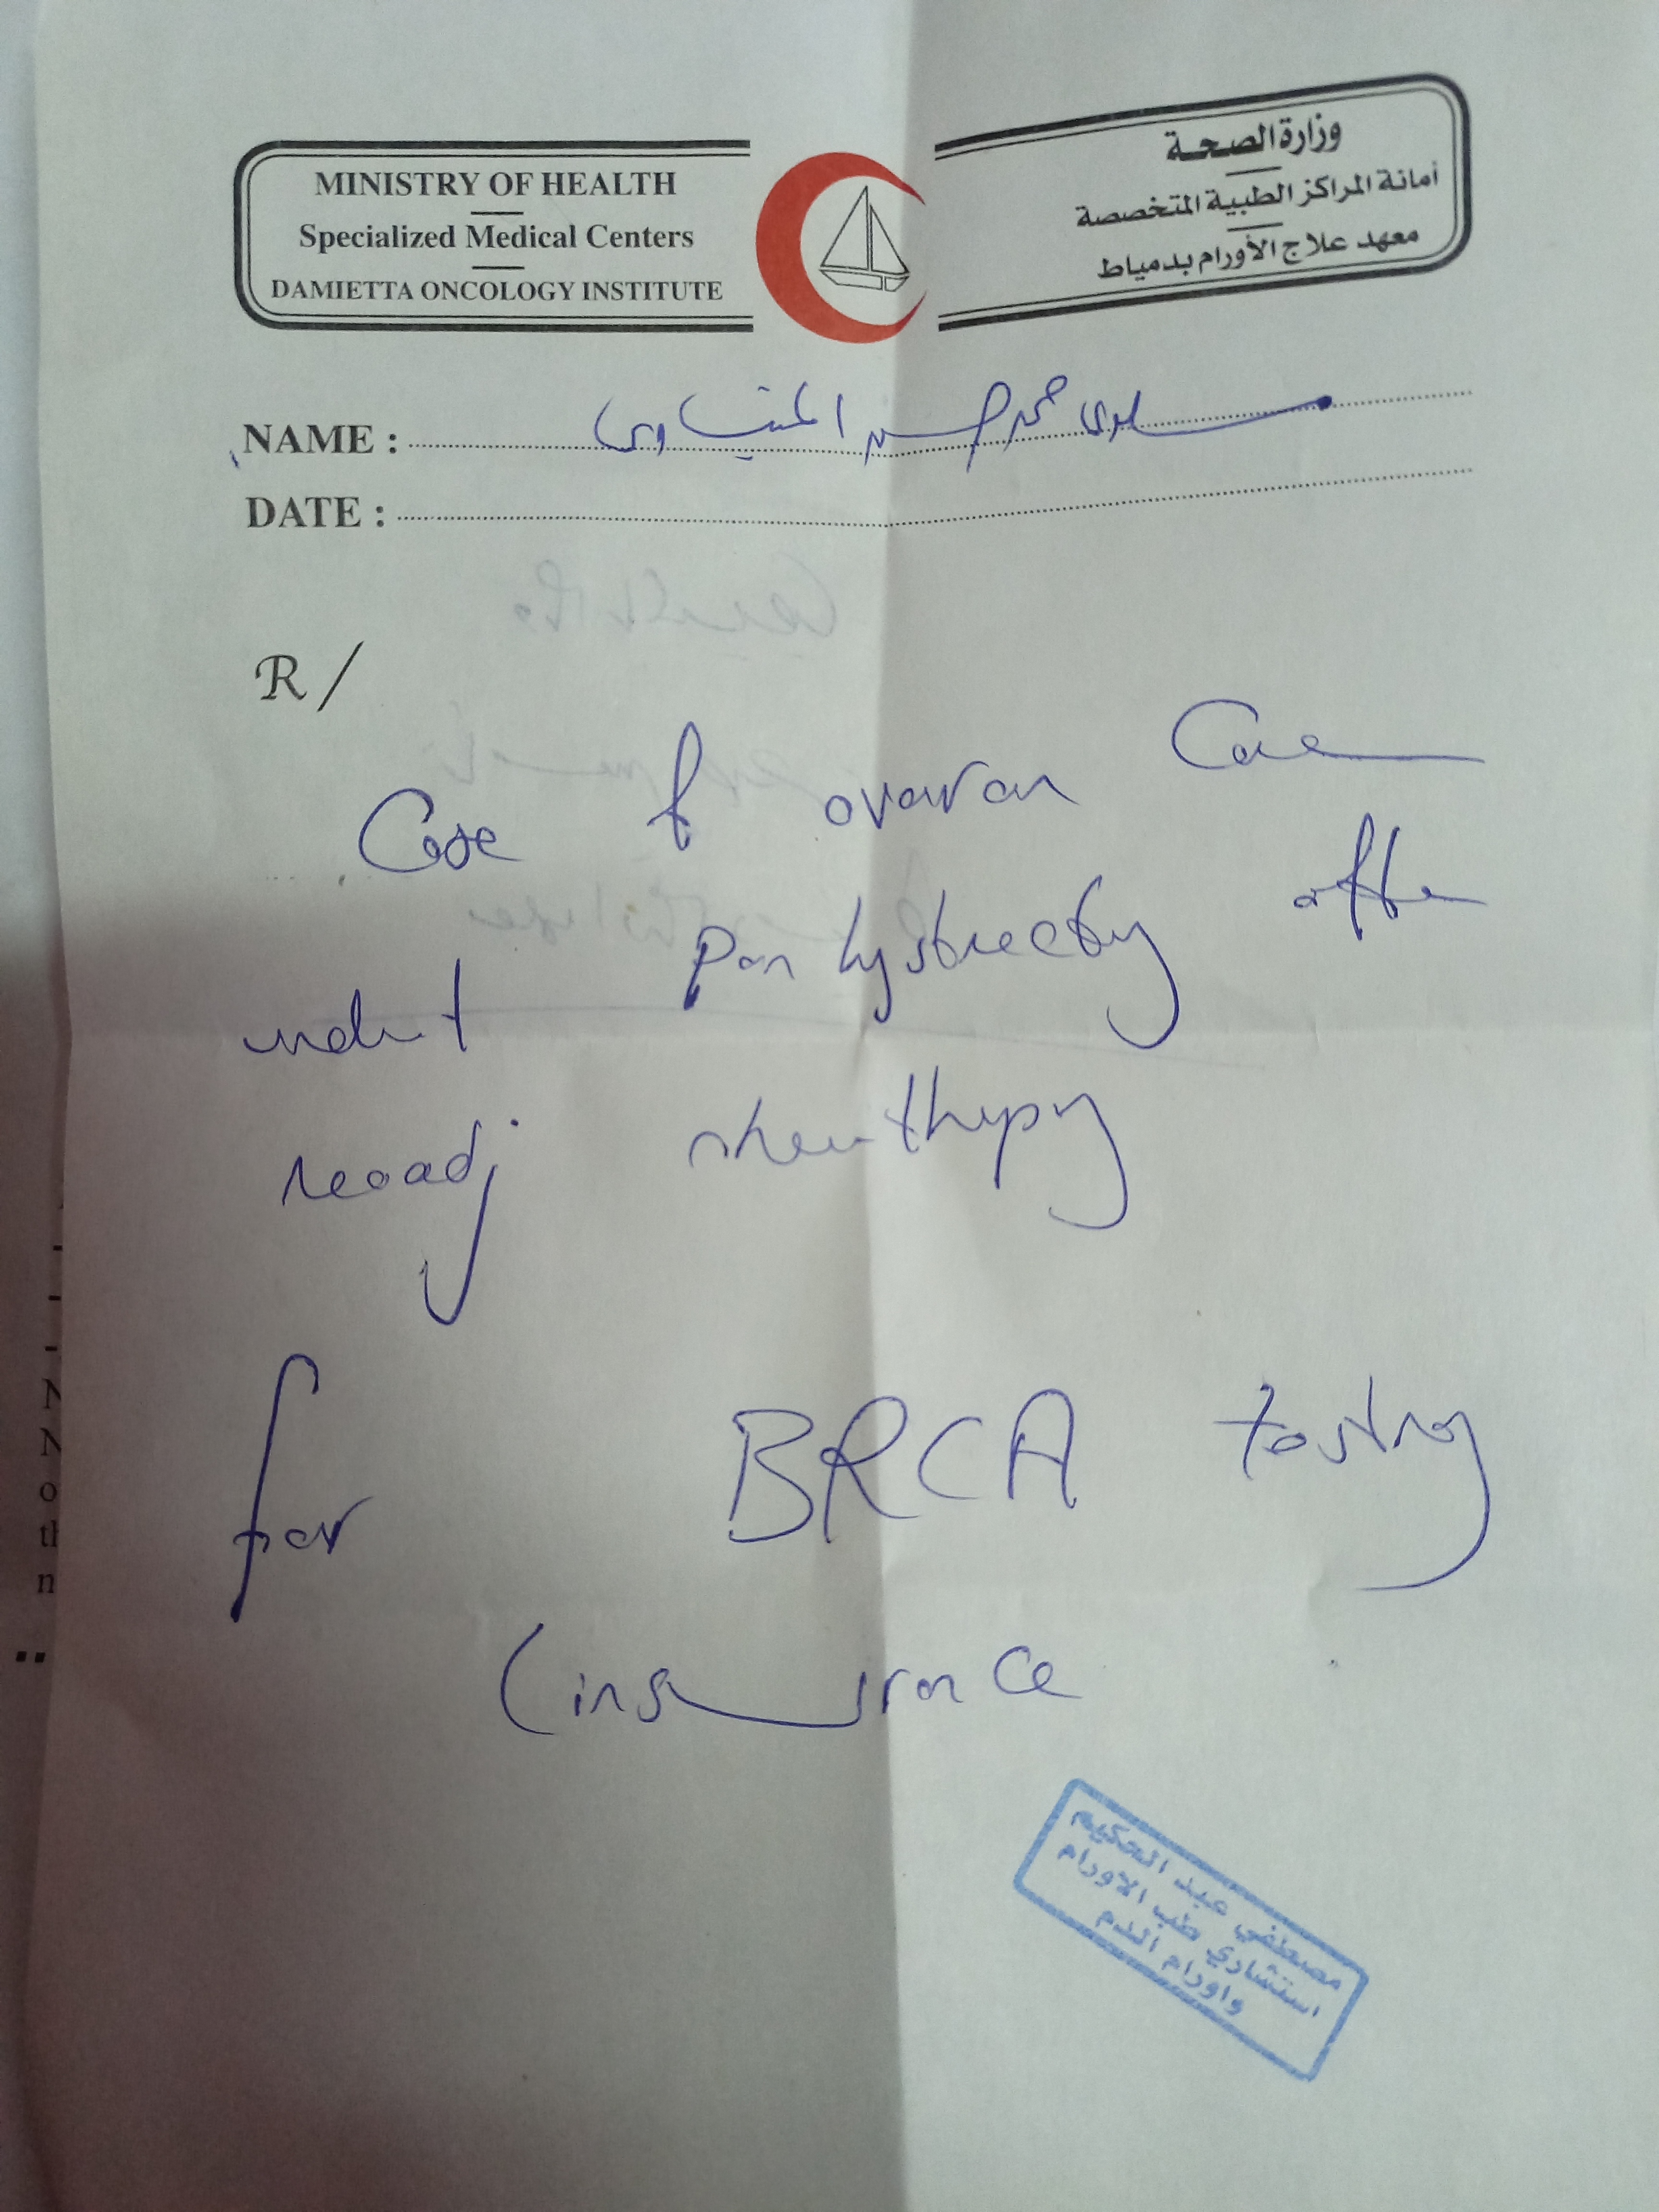 MINISTRY OF HEALTH
Specialized Medical Centers
DAMIETTA ONCOLOGY INSTITUTE
وزارة الصحة
أمانة المراكز الطبية المتخصصة
معهد علاج الأورام بدمياط
NAME : سلوى محمد
DATE :
R /
Case of ovarian Can
undert pan hystrectomy after
neoadj chemotherapy
for BRCA testing
(insurance
مصطفي عبد الحكيم
استشاري طب الاورام
واورام الدم